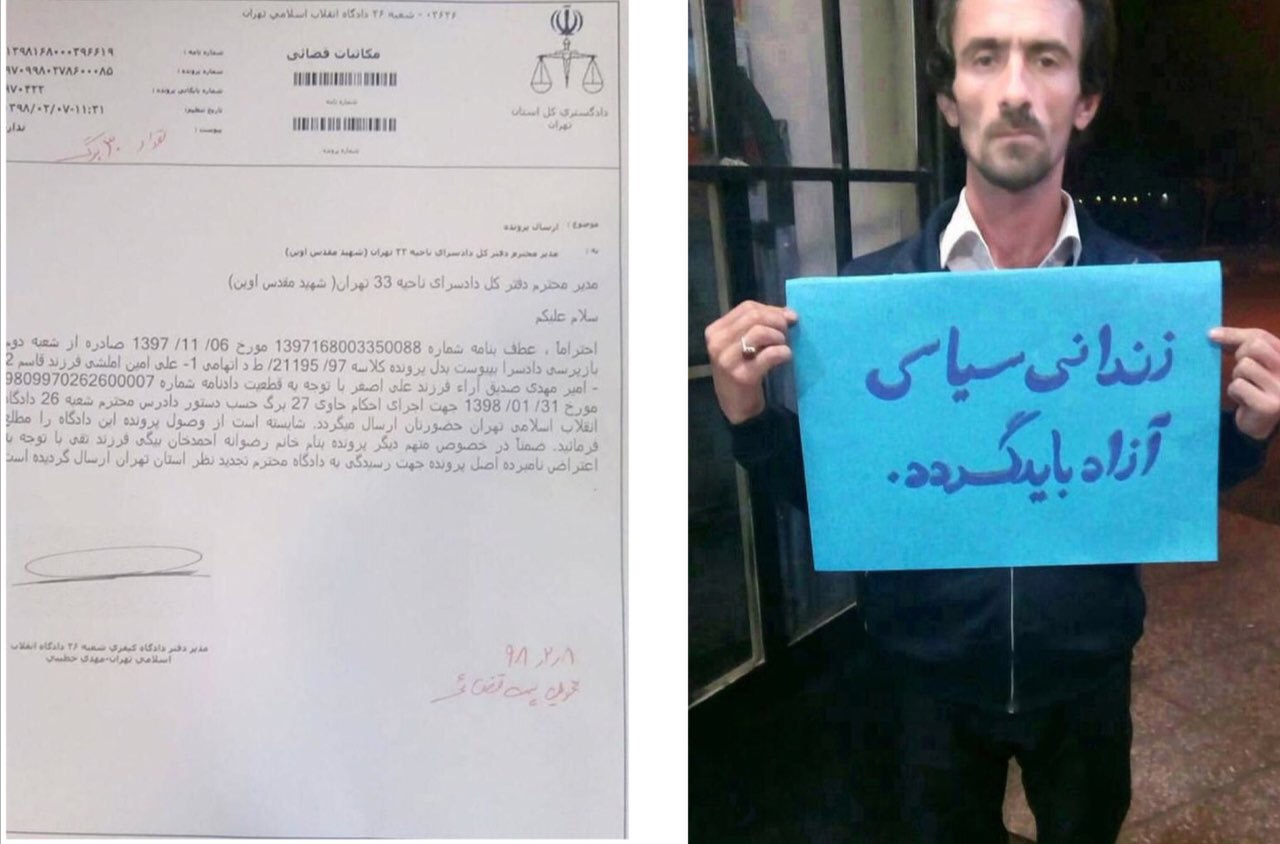 ۰۳۶۲۶ - شعبه ۲۶ دادگاه انقلاب اسلامی تهران
دادگستری کل استان
تهران
مکاتبات قضائی
شماره نامه
شماره پرونده
شماره نامه : ۱۳۹۸۱۶۸۰۰۰۳۹۶۶۱۹
شماره پرونده : ۹۷۰۹۹۸۰۲۷۸۶۰۰۰۸۵
شماره بایگانی پرونده : ۹۷۰۴۲۲
تاریخ تنظیم: ۳۹۸/۰۲/۰۷-۱۱:۲۱
پیوست : ندار
تعداد ۳۰ برگ
موضوع : ارسال پرونده
به : مدیر محترم دفتر کل دادسرای ناحیه ۳۳ تهران (شهید مقدس اوین)
مدیر محترم دفتر کل دادسرای ناحیه 33 تهران( شهید مقدس اوین)
سلام علیکم
احتراماً ، عطف بنامه شماره 1397168003350088 مورخ 06/ 11/ 1397 صادره از شعبه دوم
بازپرسی دادسرا بپیوست بدل پرونده کلاسه 97/ 21195/ ط د اتهامی 1- علی امین املشی فرزند قاسم 2
- امیر مهدی صدیق آراء فرزند علی اصغر با توجه به قطعیت دادنامه شماره 9809970262600007
مورخ 31/ 01/ 1398 جهت اجرای احکام حاوی 27 برگ حسب دستور دادرس محترم شعبه 26 دادگاه
انقلاب اسلامی تهران حضورتان ارسال میگردد. شایسته است از وصول پرونده این دادگاه را مطلع
فرمائید. ضمناً در خصوص متهم دیگر پرونده بنام خانم رضوانه احمدخان بیگی فرزند تقی با توجه به
اعتراض نامبرده اصل پرونده جهت رسیدگی به دادگاه محترم تجدید نظر استان تهران ارسال گردیده است
.
مدیر دفتر دادگاه کیفری شعبه ۲۶ دادگاه انقلاب
اسلامی تهران-مهدی خطیبی
۹۸،۲،۸
زندانی سیاسی
آزاد باید گردد.